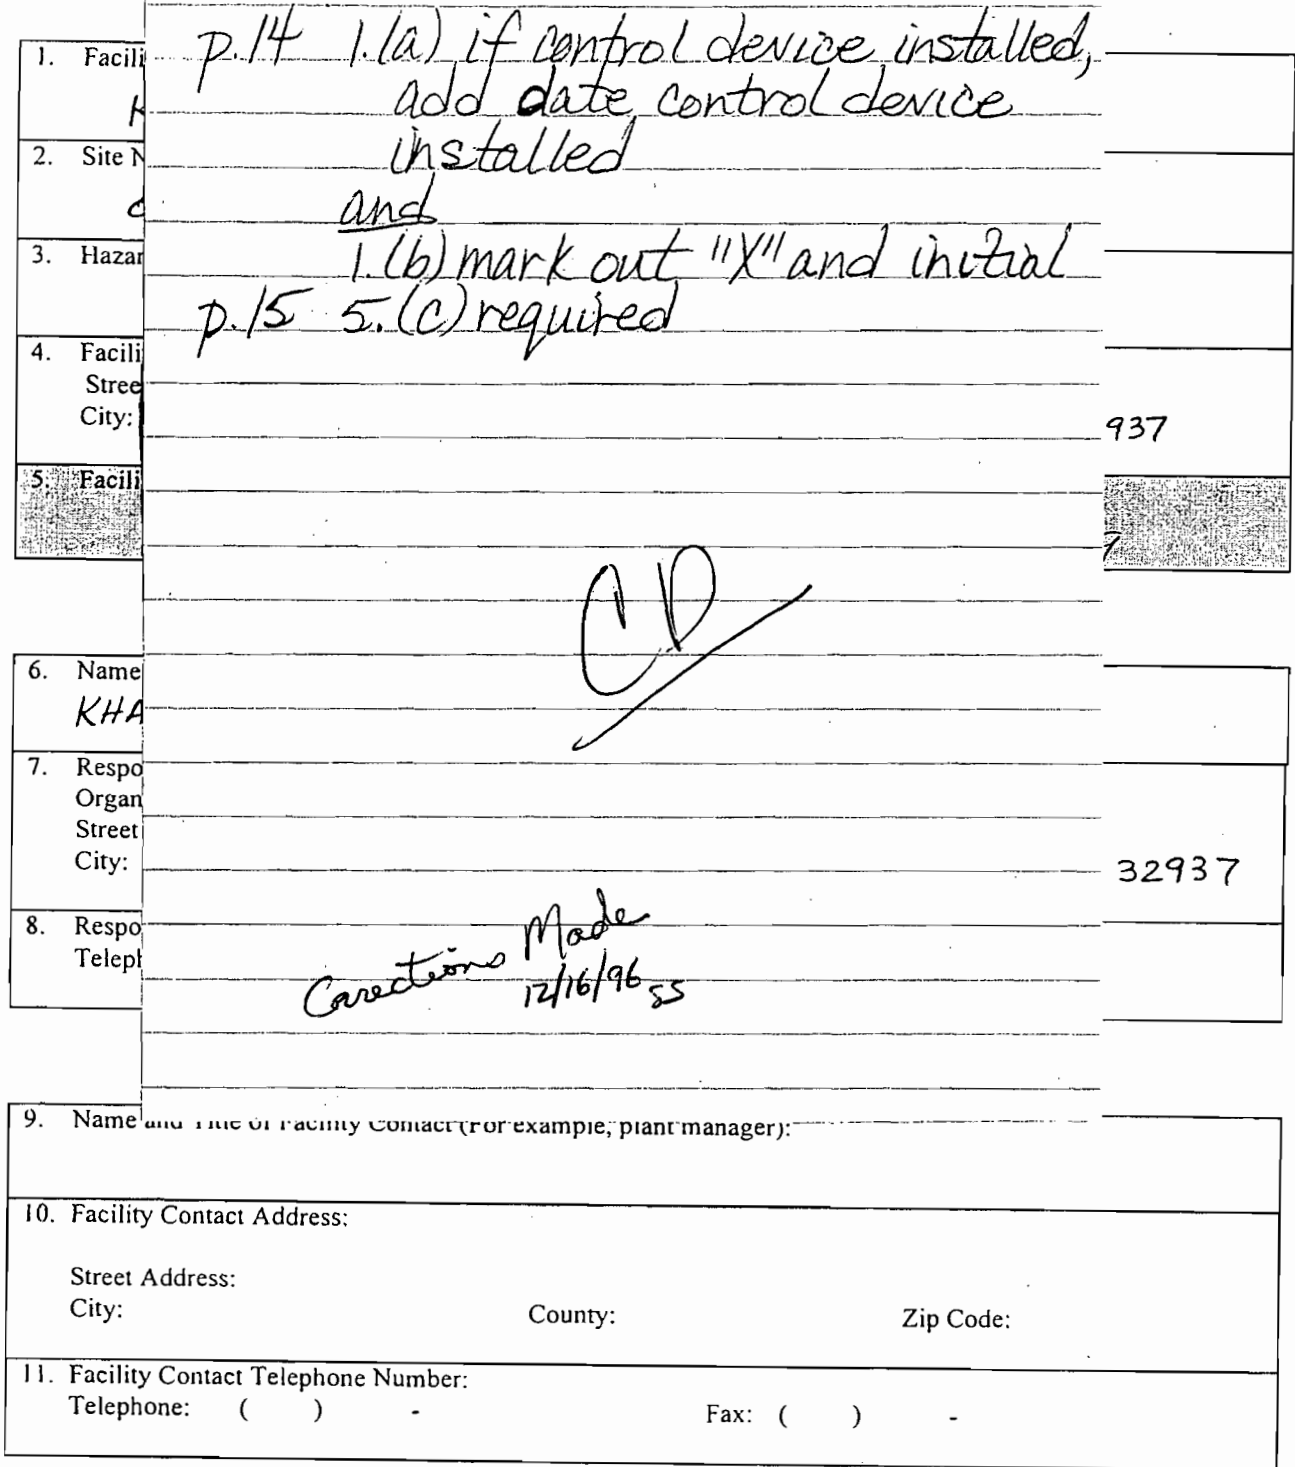 p.14 1.(a) if control device installed,
add date control device
installed
and
1.(b) mark out "X" and initial
p.15 5.(c) required
1. Facili
K
2. Site N
3. Hazar
4. Facili
Stree
City:
937
5. Facili
CD
6. Name
KHA
7. Respo
Organ
Street
City:
32937
8. Respo
Teleph
Corections Made
12/16/96 SS
9. Name and Title of Facility Contact (For example, plant manager):
10. Facility Contact Address:
Street Address:
City: County: Zip Code:
11. Facility Contact Telephone Number:
Telephone: ( ) - Fax: ( ) -